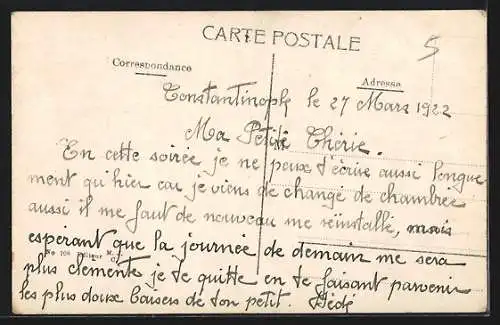 CARTE POSTALE
5
Correspondance
Adresse
Constantinople le 27 Mars 1922
Ma Petite Chérie.
En cette soirée je ne peux t'écrire aussi longue
ment qu'hier car je viens de changé de chambre
aussi il me faut de nouveau me réinstallé, mais
espérant que la journée de demain me sera
plus clemente je te quitte en te faisant parvenir
les plus doux baisers de ton petit. Dédé
No 108 Editeur M.